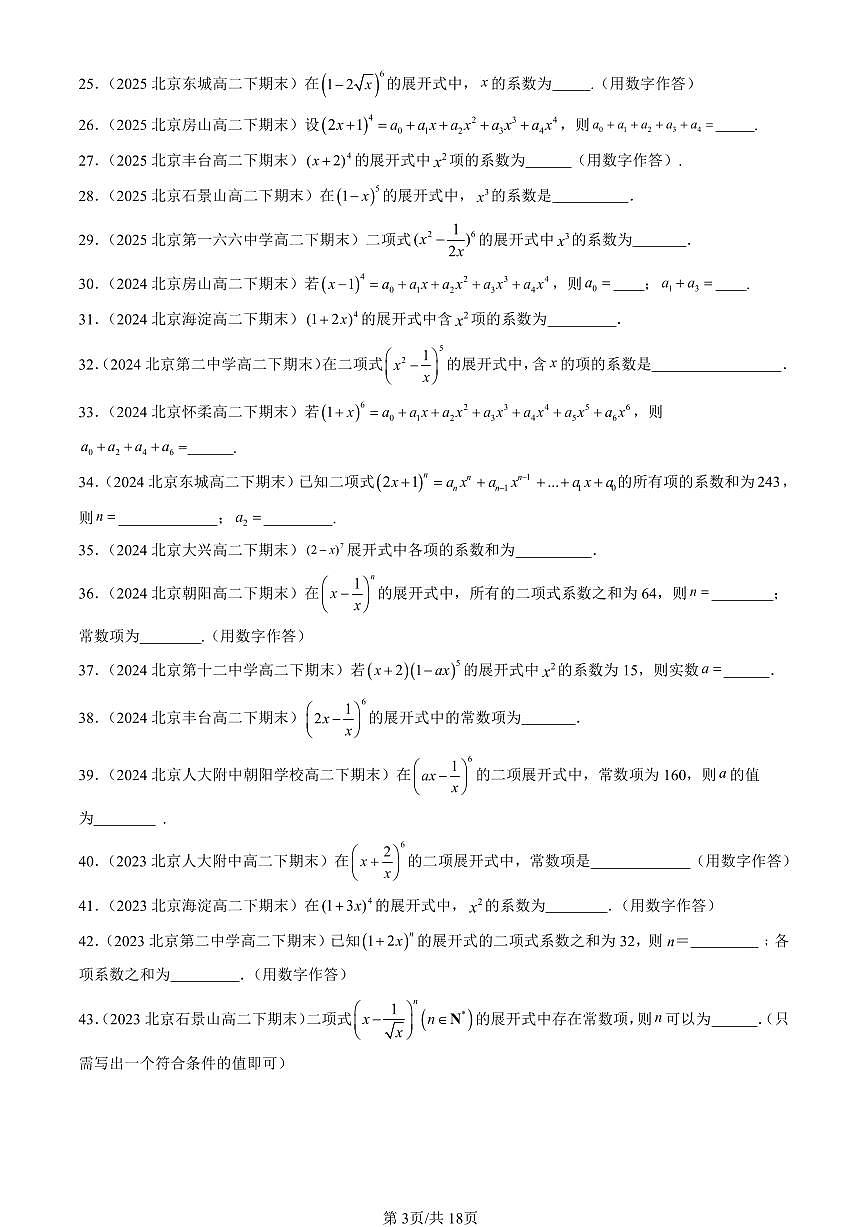 25.（2025 北京东城高二下期末）在$\left(1-2\sqrt{x}\right)^6$的展开式中，$x$ 的系数为_____.（用数字作答）
26.（2025 北京房山高二下期末）设$(2x+1)^4=a_0+a_1x+a_2x^2+a_3x^3+a_4x^4$，则$a_0+a_1+a_2+a_3+a_4=$_____.
27.（2025 北京丰台高二下期末）$(x+2)^4$的展开式中$x^2$项的系数为______（用数字作答）.
28.（2025 北京石景山高二下期末）在$(1-x)^5$的展开式中，$x^3$的系数是__________.
29.（2025 北京第一六六中学高二下期末）二项式$(x^2-\frac{1}{2x})^6$的展开式中$x^3$的系数为_______.
30.（2024 北京房山高二下期末）若$(x-1)^4=a_0+a_1x+a_2x^2+a_3x^3+a_4x^4$，则$a_0=$____；$a_1+a_3=$____.
31.（2024 北京海淀高二下期末）$(1+2x)^4$的展开式中含$x^2$项的系数为_________.
32.（2024 北京第二中学高二下期末）在二项式$\left(x^2-\frac{1}{x}\right)^5$的展开式中，含$x$的项的系数是_________________.
33.（2024 北京怀柔高二下期末）若$(1+x)^6=a_0+a_1x+a_2x^2+a_3x^3+a_4x^4+a_5x^5+a_6x^6$，则
$a_0+a_2+a_4+a_6=$______.
34.（2024 北京东城高二下期末）已知二项式$(2x+1)^n=a_nx^n+a_{n-1}x^{n-1}+...+a_1x+a_0$的所有项的系数和为243，
则$n=$_____________；$a_2=$_________.
35.（2024 北京大兴高二下期末）$(2-x)^7$展开式中各项的系数和为__________.
36.（2024 北京朝阳高二下期末）在$\left(x-\frac{1}{x}\right)^n$的展开式中，所有的二项式系数之和为 64，则$n=$________；
常数项为________.（用数字作答）
37.（2024 北京第十二中学高二下期末）若$(x+2)(1-ax)^5$的展开式中$x^2$的系数为 15，则实数$a=$______.
38.（2024 北京丰台高二下期末）$\left(2x-\frac{1}{x}\right)^6$的展开式中的常数项为_______.
39.（2024 北京人大附中朝阳学校高二下期末）在$\left(ax-\frac{1}{x}\right)^6$的二项展开式中，常数项为 160，则$a$的值
为________ .
40.（2023 北京人大附中高二下期末）在$\left(x+\frac{2}{x}\right)^6$的二项展开式中，常数项是_____________（用数字作答）
41.（2023 北京海淀高二下期末）在$(1+3x)^4$的展开式中，$x^2$的系数为________.（用数字作答）
42.（2023 北京第二中学高二下期末）已知$(1+2x)^n$的展开式的二项式系数之和为 32，则 $n$＝_________；各
项系数之和为_________.（用数字作答）
43.（2023 北京石景山高二下期末）二项式$\left(x-\frac{1}{\sqrt{x}}\right)^n\left(n\in\mathbf{N}^*\right)$的展开式中存在常数项，则$n$可以为______.（只
需写出一个符合条件的值即可）
第 3页/共 18页